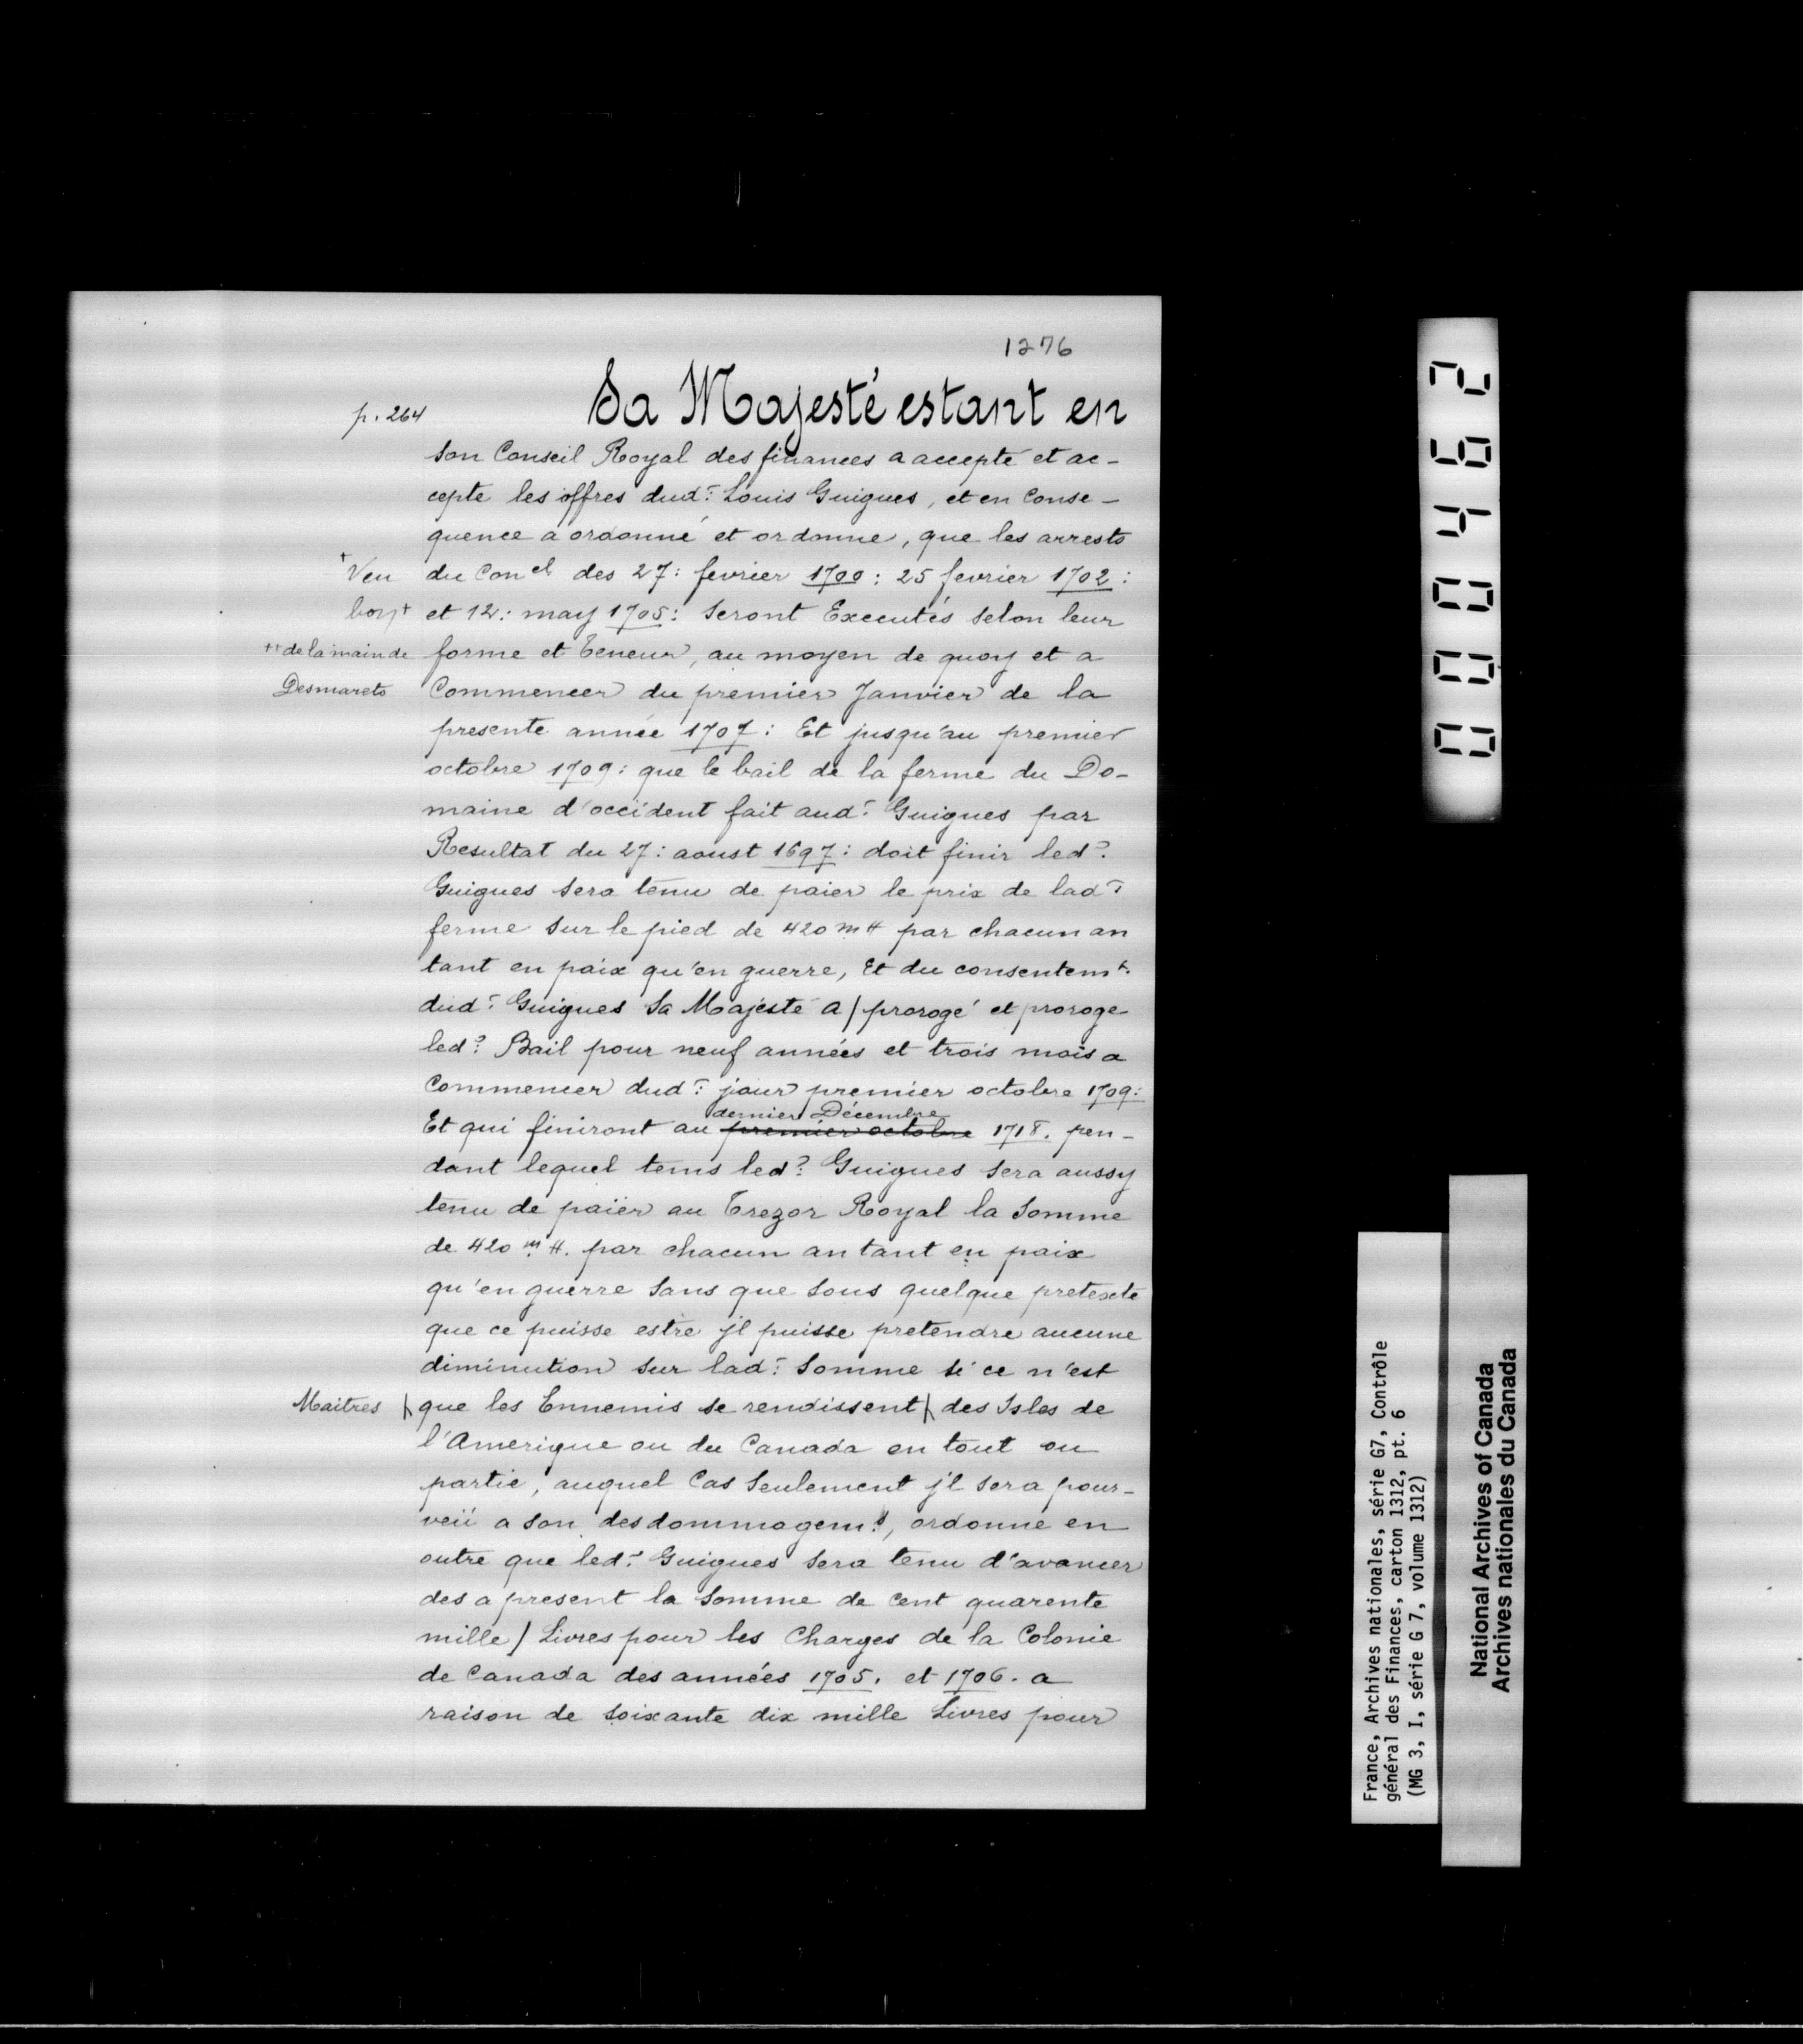 1276
p. 264
Sa Majesté estant en
son Conseil Royal des finances a accepté et ac-
cepte les offres dud.t Louis Guigues, et en Conse-
quence a ordonné et ordonne, que les arrests
+ Veu
du Con.el des 27: fevrier 1700: 25 fevrier 1702:
bon +
et 12: may 1705: seront Executés selon leur
++ de la main de
forme et teneur, au moyen de quoy et a
Desmarets
Commencer du premier Janvier de la
presente année 1707: Et jusqu'au premier
octobre 1709: que le bail de la ferme du Do-
maine d'occident fait aud.t Guigues par
Resultat du 27: aoust 1697: doit finir led.t
Guigues sera tenu de paier le prix de lad.t
ferme sur le pied de 420 m ₶ par chacun an
tant en paix qu'en guerre, Et du consentem.t
dud.t Guigues Sa Majesté a / prorogé et proroge
led.t Bail pour neuf années et trois mois a
Commencer dud.t jour premier octobre 1709:
dernier Décembre
Et qui finiront au premier octobre 1718. pen-
dant lequel tems led.t Guigues sera aussy
tenu de paiër au Trezor Royal la Somme
de 420 m ₶. par chacun an tant en paix
qu'en guerre sans que sous quelque pretexte
que ce puisse estre jl puisse pretendre aucune
diminution sur lad.t somme si ce n'est
Maitres
que les Ennemis se rendissent des Isles de
l'Amerique ou du Canada en tout ou
partie, auquel Cas seulement jl sera pour-
veü a son desdommagem.t, ordonne en
outre que led.t Guigues sera tenu d'avancer
des a present la somme de Cent quarente
mille / Livres pour les Charges de la Colonie
de Canada des années 1705. et 1706. a
raison de soixante dix mille Livres pour
000462
France, Archives nationales, série G7, Contrôle
général des Finances, carton 1312, pt. 6
(MG 3, I, série G 7, volume 1312)
National Archives of Canada
Archives nationales du Canada